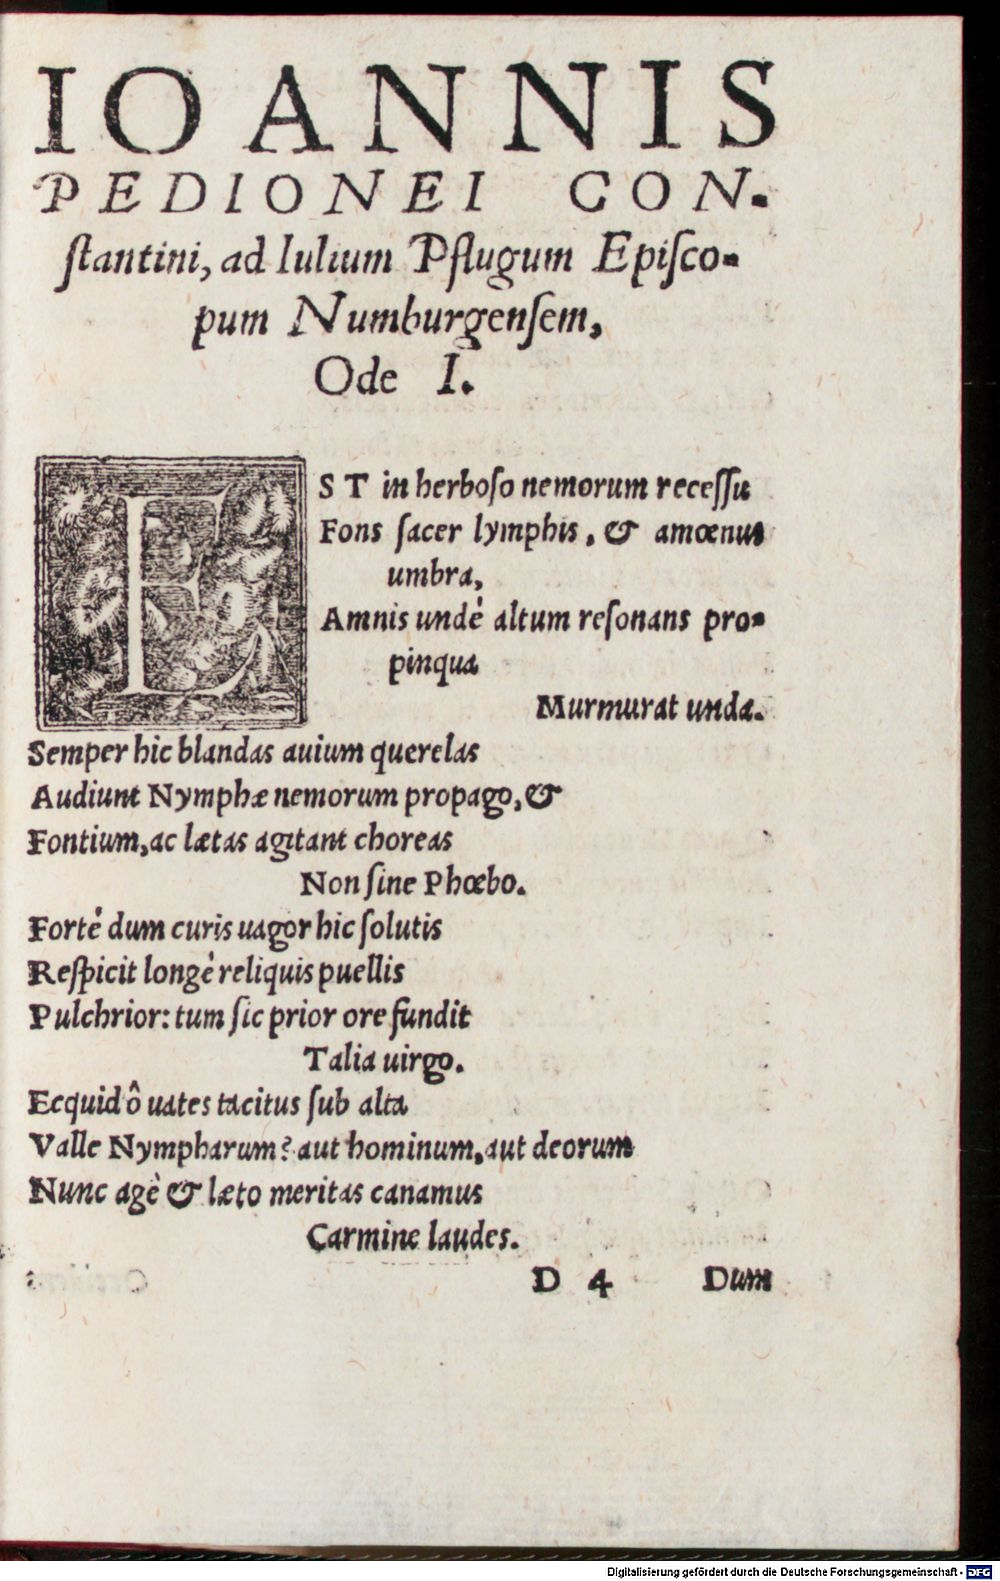 IOANNIS
PEDIONEI CON-
ſtantini, ad Iulium Pflugum Epiſco-
pum Numburgenſem,
Ode I.
EST in herboſo nemorum receſſu
Fons ſacer lymphis, & amœnus
umbra,
Amnis undé altum reſonans pro-
pinqua
Murmurat unda.
Semper hic blandas auium querelas
Audiunt Nymphæ nemorum propago, &
Fontium, ac lætas agitant choreas
Non ſine Phœbo.
Forté dum curis uagor hic ſolutis
Reſpicit longè reliquis puellis
Pulchrior: tum ſic prior ore fundit
Talia uirgo.
Ecquid ô uates tacitus ſub alta
Valle Nympharum? aut hominum, aut deorum
Nunc agè & læto meritas canamus
Carmine laudes.
D 4 Dum
Digitalisierung gefördert durch die Deutsche Forschungsgemeinschaft - DFG